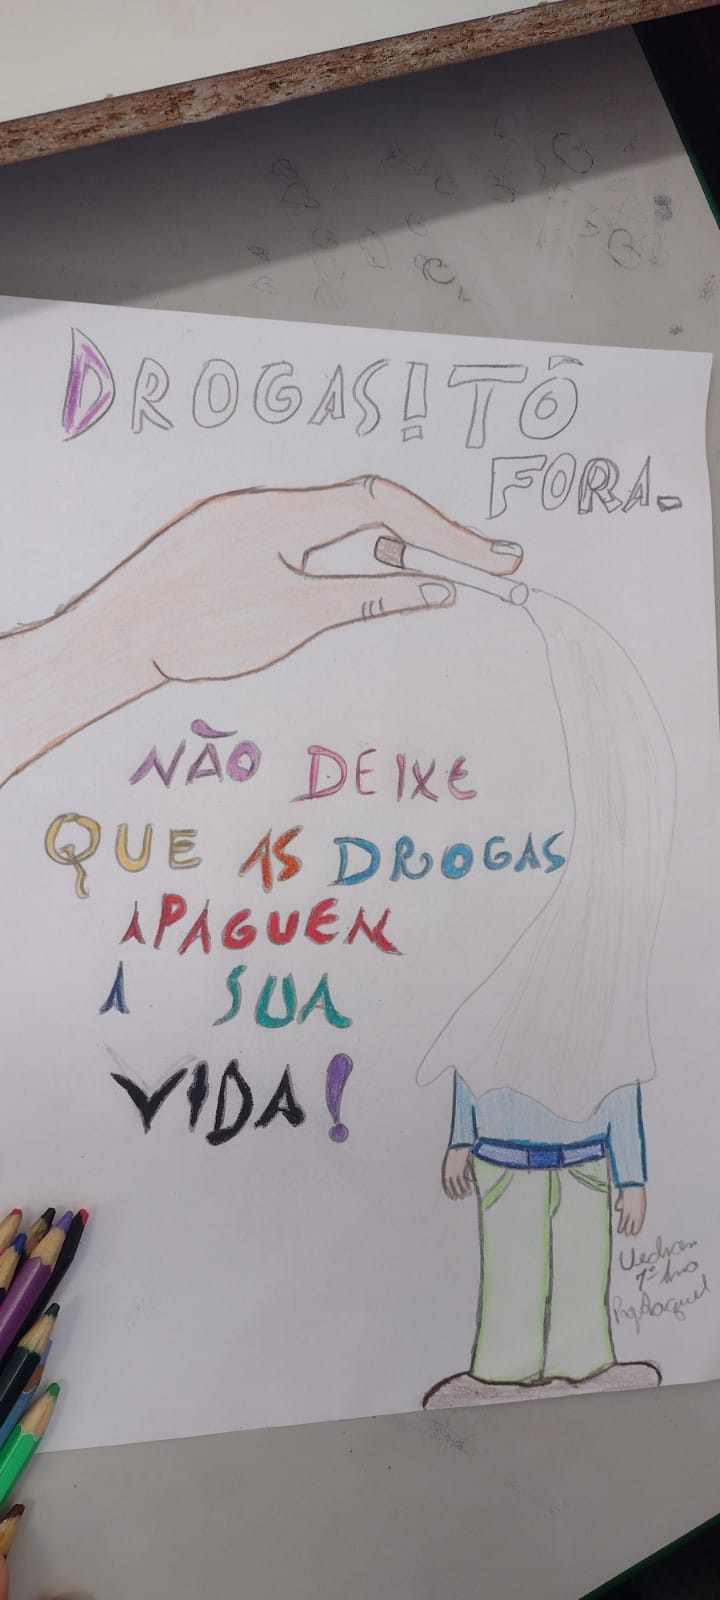 DROGAS! TÔ
FORA.
NÃO DEIXE
QUE AS DROGAS
APAGUEN
A SUA
VIDA!
7º Ano
Raquel